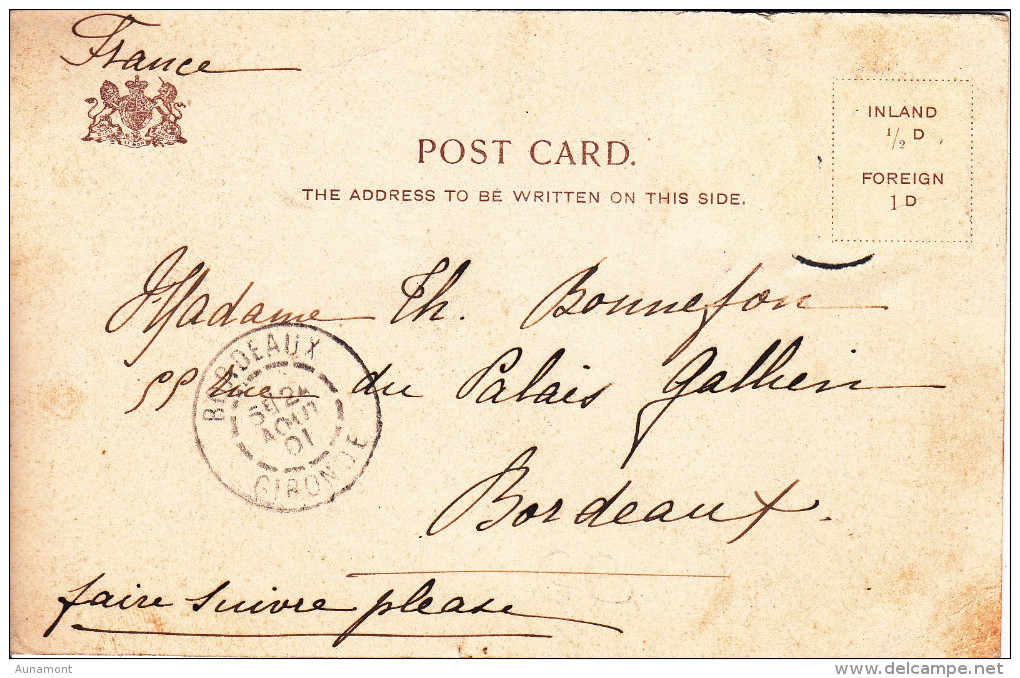 France
POST CARD.
THE ADDRESS TO BE WRITTEN ON THIS SIDE.
INLAND
1/2 D
FOREIGN
1 D
Madame Th. Bonnefon
55 rue du Palais Gallien
Bordeaux.
faire suivre please
BORDEAUX
AOUT
01
GIRONDE
Aunamont
www.delcampe.net